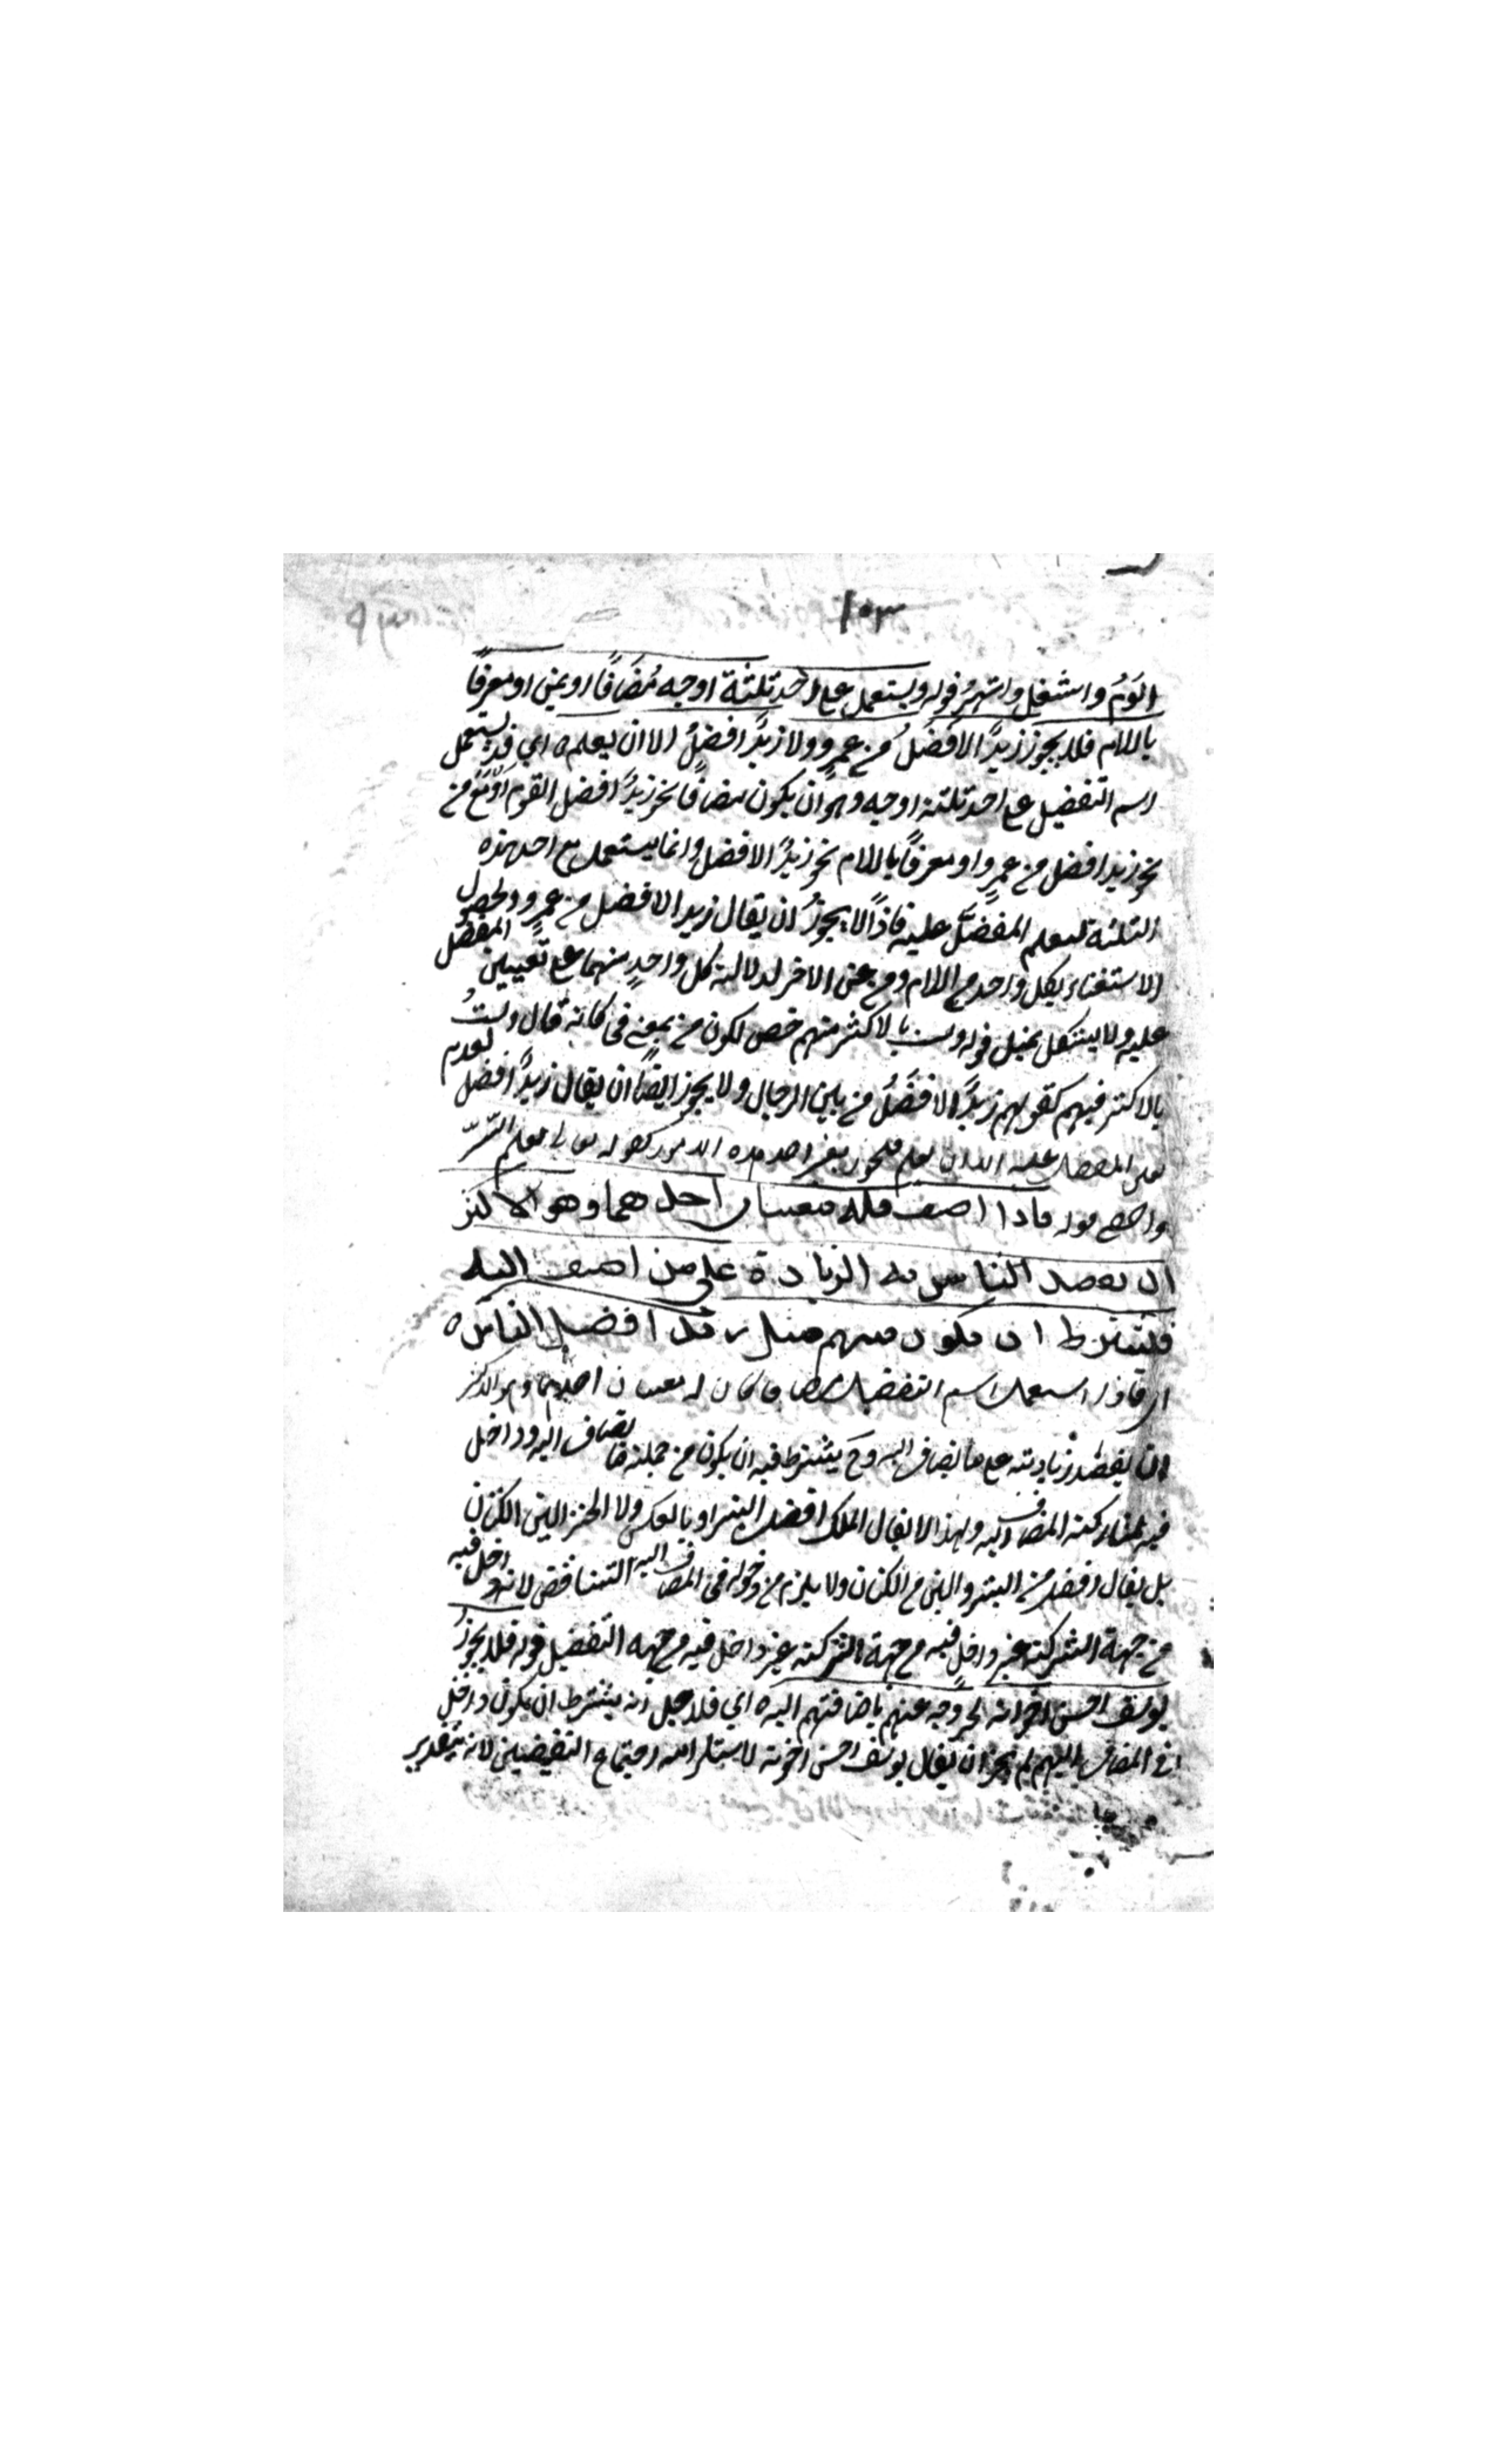 ١٠٣
الوم واشغل واشهر قوله ويستعمل على احد ثلثة اوجه مُضَافًا او بمن او معرفًا
باللام فلا يجوز زيدٌ الافضلُ من عمرٍو ولا زيدٌ افضلُ الا ان يعلم ه اي قد يستعمل
اسم التفضيل على احد ثلثة اوجه وهو ان يكون مضافًا نحو زيدٌ افضل القوم او مع من
نحو زيد افضل من عمرٍو او معرفًا باللام نحو زيدٌ الافضل وانما يستعمل مع احد هذه
الثلثة ليعلم المفضَّل عليه فاذًا لا يجوزُ ان يقال زيد الافضل من عمرٍو ولحصول
الاستغناء بكل واحد من اللام ومن عن الاخر لدلالة كل واحدٍ منهما على تعيين المفضل
عليه ولا يشكل بمثل قوله ولست بالاكثر منهم حصى لكون من بمعنى في كانه قال ولستُ
بالاكثر فيهم كقولهم زيدٌ الافضَلُ من بين الرجال ولا يجوز ايضًا ان يقال زيدٌ افضل لعدم
المفضل عليه الا ان يعلم فيجوز بغير احد هذه الامور كقوله تعالى يعلم السّرّ
واخفى قوله فاذا اضيف فله معنيان احدهما وهو الاكثر
ان يقصد الناس به الزيادة على من اضيف اليه
فيشترط ان يكون منهم مثل زيد افضل الناس ه
اي فاذا استعمل اسم التفضيل مضافا كان له معنيان احدهما وهو الاكثر
ان يقصد زيادته على ما يضاف اليه وح يشترط فيه ان يكون من جملة ما يضاف اليه وداخل
فيه لمشاركته المضاف اليه ولهذا لا يقال الملك افضل البشر او بالعكس ولا الخز الين الكتان
بل يقال افضل من البشر والين من الكتان ولا يلزم من دخوله في المضاف اليه التناقض لانه داخل فيه
من جهة الشركة غير داخل فيه من جهة الشركة غير داخل فيه من جهة التفضيل قوله فلا يجوزُ
يوسف احسن اخوته لخروجه عنهم باضافتهم اليه ه اي فلاجل انه يشترط ان يكون داخل
في المضاف اليهم لم يجز ان يقال يوسف احسن اخوته لاستلزامه اجتماع النقيضين لانه بتقدير